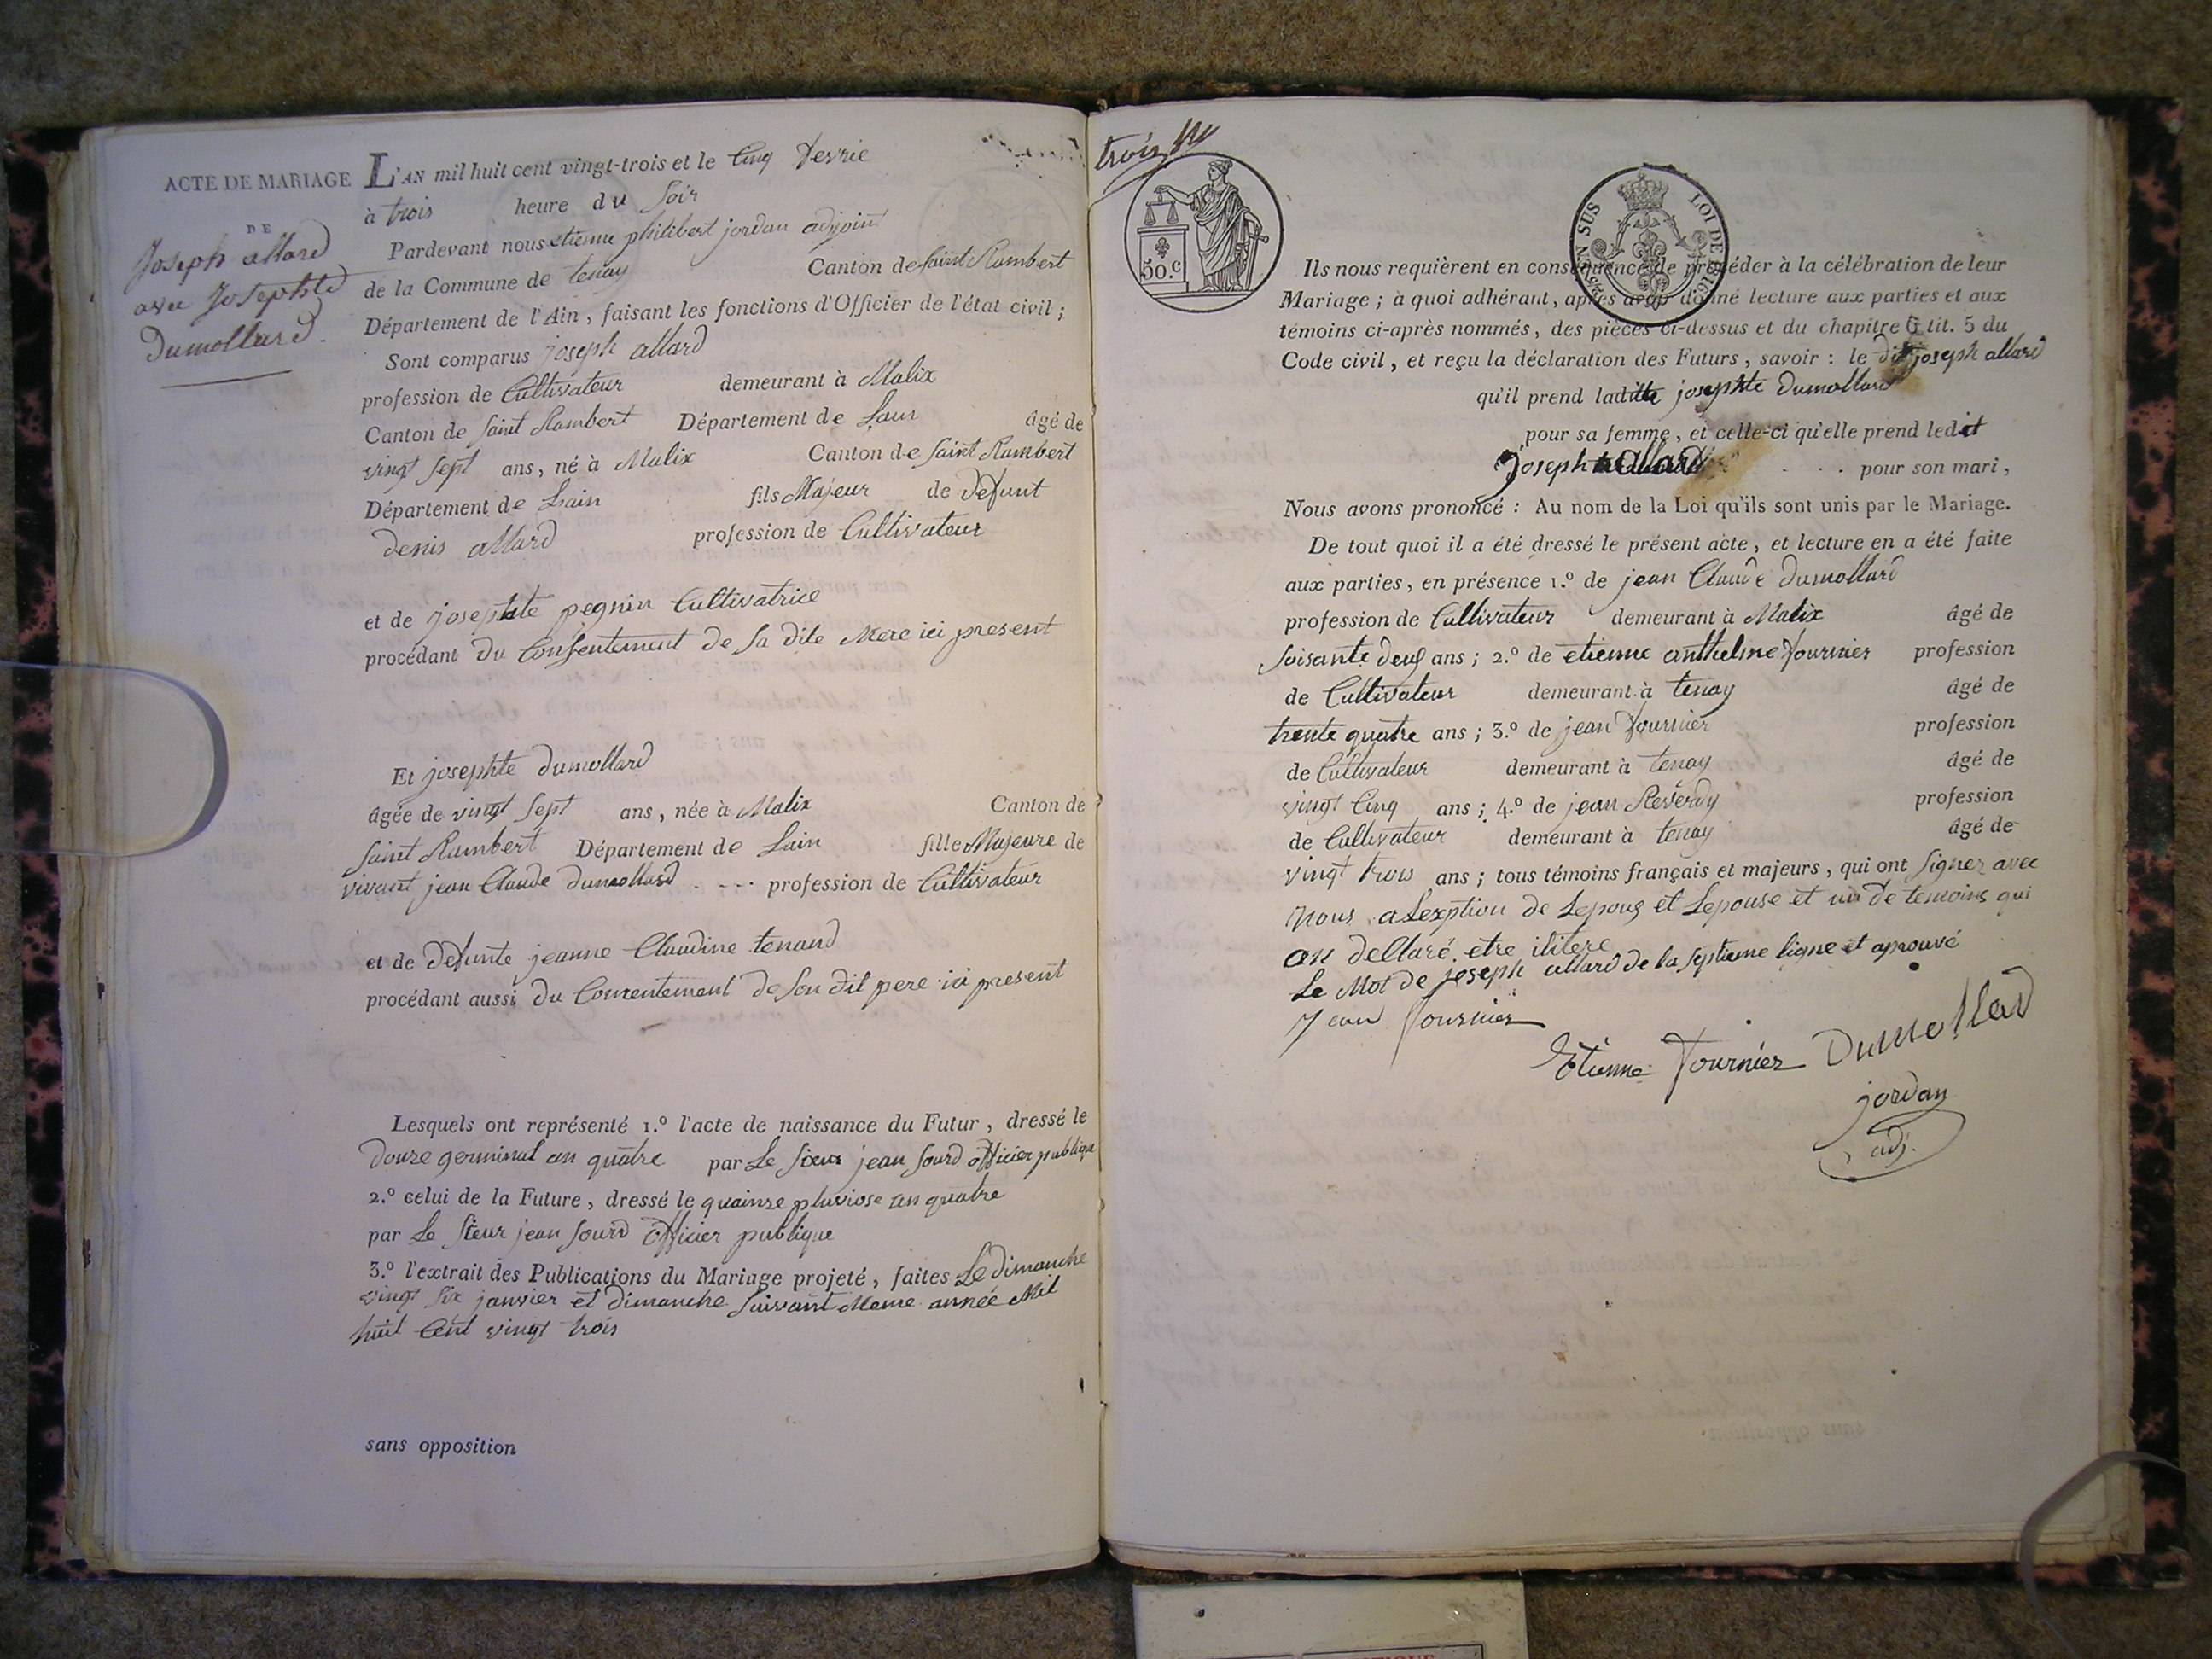 ACTE DE MARIAGE
DE
Joseph allard
avec Josephte
Dumollard.
L'AN mil huit cent vingt-trois et le Cinq fevrie
à trois heure du Soir
Pardevant nous etienne philibert jordan adjoint
de la Commune de tenay Canton de saint Rambert
Département de l'Ain, faisant les fonctions d'Officier de l'état civil ;
Sont comparus joseph allard
profession de Cultivateur demeurant à Malix
Canton de saint Rambert Département de Lain âgé de
vingt sept ans, né à Malix Canton de saint Rambert
Département de Lain fils Majeur de defunt
denis allard profession de Cultivateur
et de josephte pegnin Cultivatrice
procédant du Consentement de sa dite Mere ici present
Et josephte dumollard
âgée de vingt sept ans, née à Malix Canton de
saint Rambert Département de Lain fille Majeure de
vivant jean Claude dumollard profession de Cultivateur
et de defunte jeanne Claudine tenand
procédant aussi du Consentement de son dit pere ici present
Lesquels ont représenté 1.º l'acte de naissance du Futur, dressé le
douze germinal an quatre par Le sieur jean sourd officier publique
2.º celui de la Future, dressé le quainze pluviose an quatre
par Le sieur jean sourd officier publique
3.º l'extrait des Publications du Mariage projeté, faites Le dimanche
vingt six janvier et dimanche suivant Meme année Mil
huit Cent vingt trois
sans opposition
trois
50.c
TIMB. EN SUS LOI DE 1816
Ils nous requièrent en conséquence de procéder à la célébration de leur
Mariage ; à quoi adhérant, après avoir donné lecture aux parties et aux
témoins ci-après nommés, des pièces ci-dessus et du chapitre 6 tit. 5 du
Code civil, et reçu la déclaration des Futurs, savoir : le dit joseph allard
qu'il prend laditte josephte dumollard
pour sa femme, et celle-ci qu'elle prend ledit
joseph allard pour son mari,
Nous avons prononcé : Au nom de la Loi qu'ils sont unis par le Mariage.
De tout quoi il a été dressé le présent acte, et lecture en a été faite
aux parties, en présence 1.º de jean Claude dumollard
profession de Cultivateur demeurant à Malix âgé de
soisante deux ans ; 2.º de etienne anthelme fournier profession
de Cultivateur demeurant à tenay âgé de
trente quatre ans ; 3.º de jean fournier profession
de Cultivateur demeurant à tenay âgé de
vingt Cinq ans ; 4.º de jean Reverdy profession
de Cultivateur demeurant à tenay âgé de
vingt trois ans ; tous témoins français et majeurs, qui ont signer avec
nous a Lexption de Lepoux et Lepouse et un de temoins qui
on dellaré etre ilitere
Le Mot de joseph allard de la septieme ligne et aprouvé
Jean fournier
Etienne fournier Dumollard
jordan
adj.